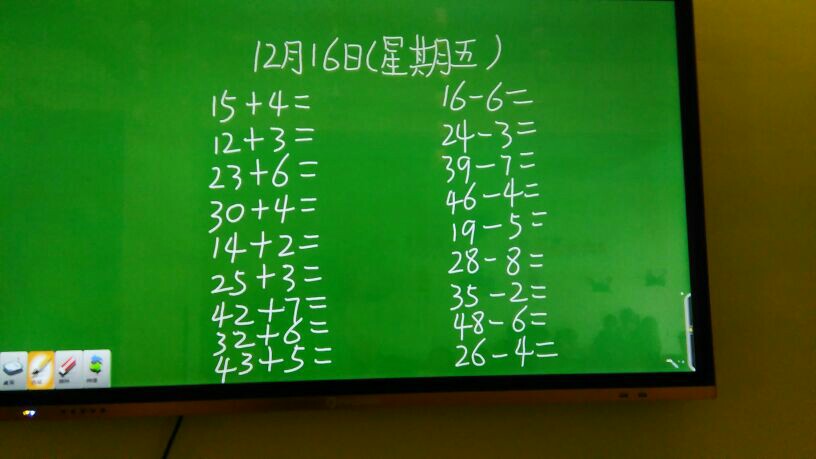 12月16日(星期五)
15+4=
12+3=
23+6=
30+4=
14+2=
25+3=
42+7=
32+6=
43+5=
16-6=
24-3=
39-7=
46-4=
19-5=
28-8=
35-2=
48-6=
26-4=